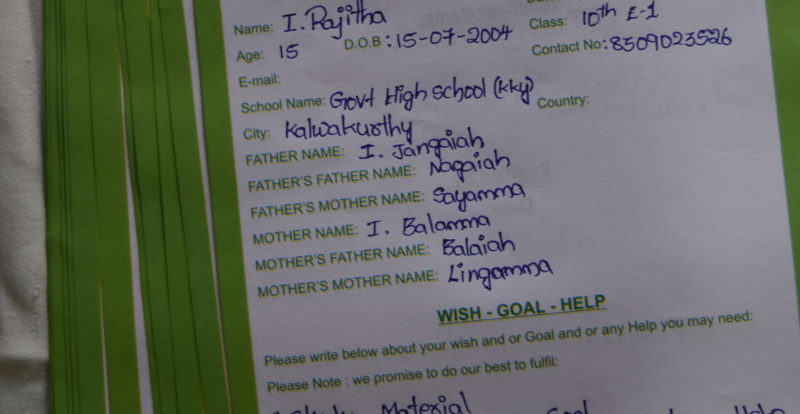 Name: I. Rajitha
Age: 15 D.O.B: 15-07-2004 Class: 10th E-1
Contact No: 8509023526
E-mail:
School Name: Govt High school (kky) Country:
City: Kalwakurthy
FATHER NAME: I. Jangaiah
FATHER'S FATHER NAME: Nagaiah
FATHER'S MOTHER NAME: Sayamma
MOTHER NAME: I. Balamma
MOTHER'S FATHER NAME: Balaiah
MOTHER'S MOTHER NAME: Lingamma
WISH - GOAL - HELP
Please write below about your wish and or Goal and or any Help you may need:
Please Note : we promise to do our best to fulfil:
Material